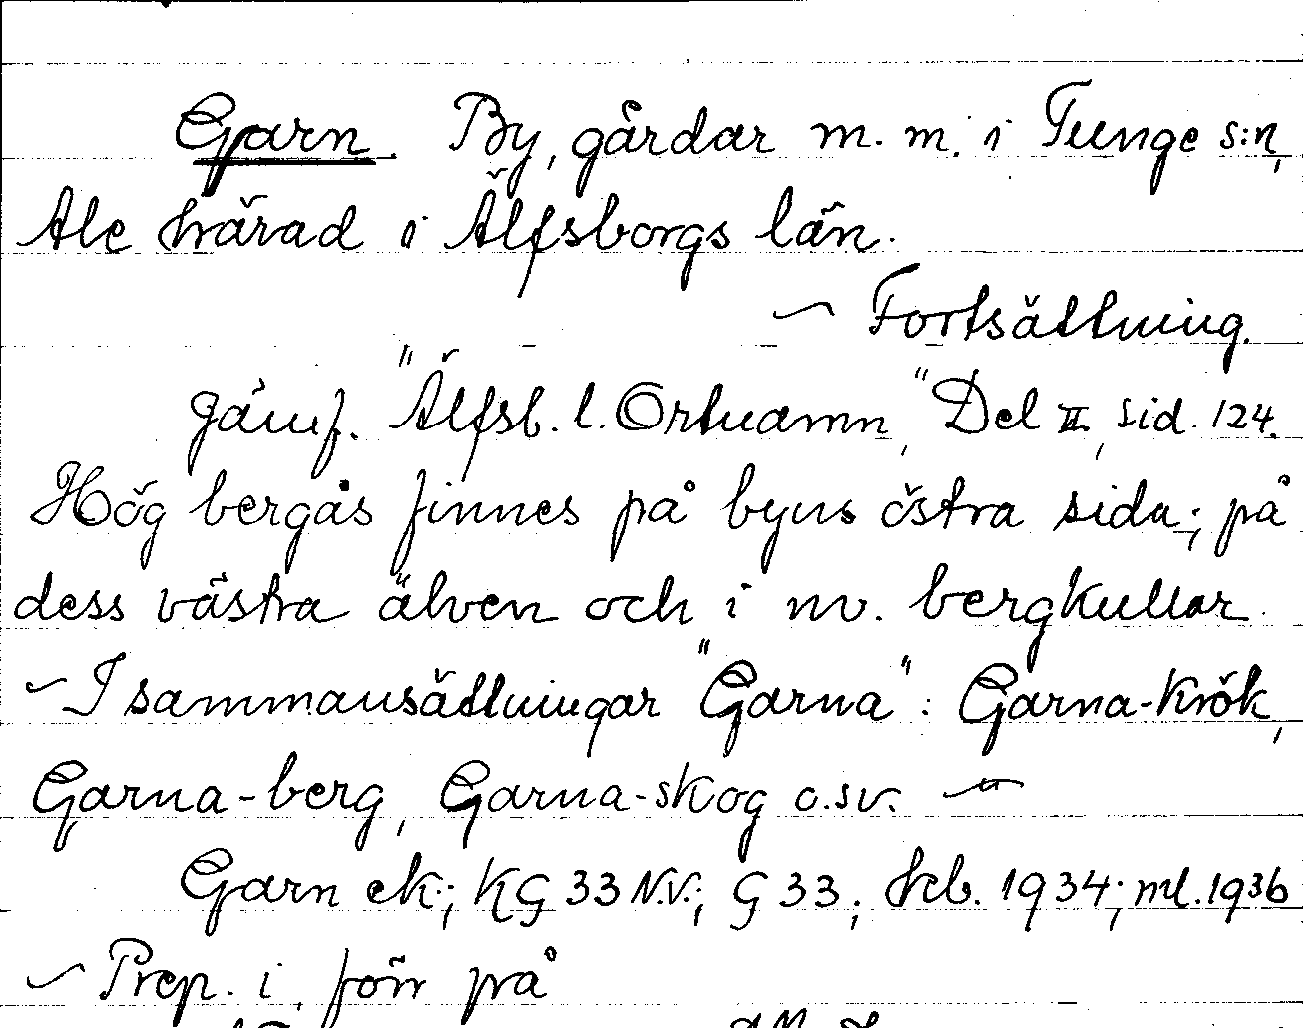 Garn. By, gårdar m. m. i Tunge s:n,
Ale härad i Älfsborgs län.
~ Fortsättning.
Jämf. "Älfsb. l. Ortnamn," Del II, sid. 124.
Hög bergås finnes på byns östra sida; på
dess västra älven och i nv. bergkullar.
~ I sammansättningar "Garna": Garna-krök,
Garna-berg, Garna-skog o.sv. ~
Garn ek.; KG 33 N.V.; G 33; Jkb. 1934; ml. 1936
~ Prep. i, förr på